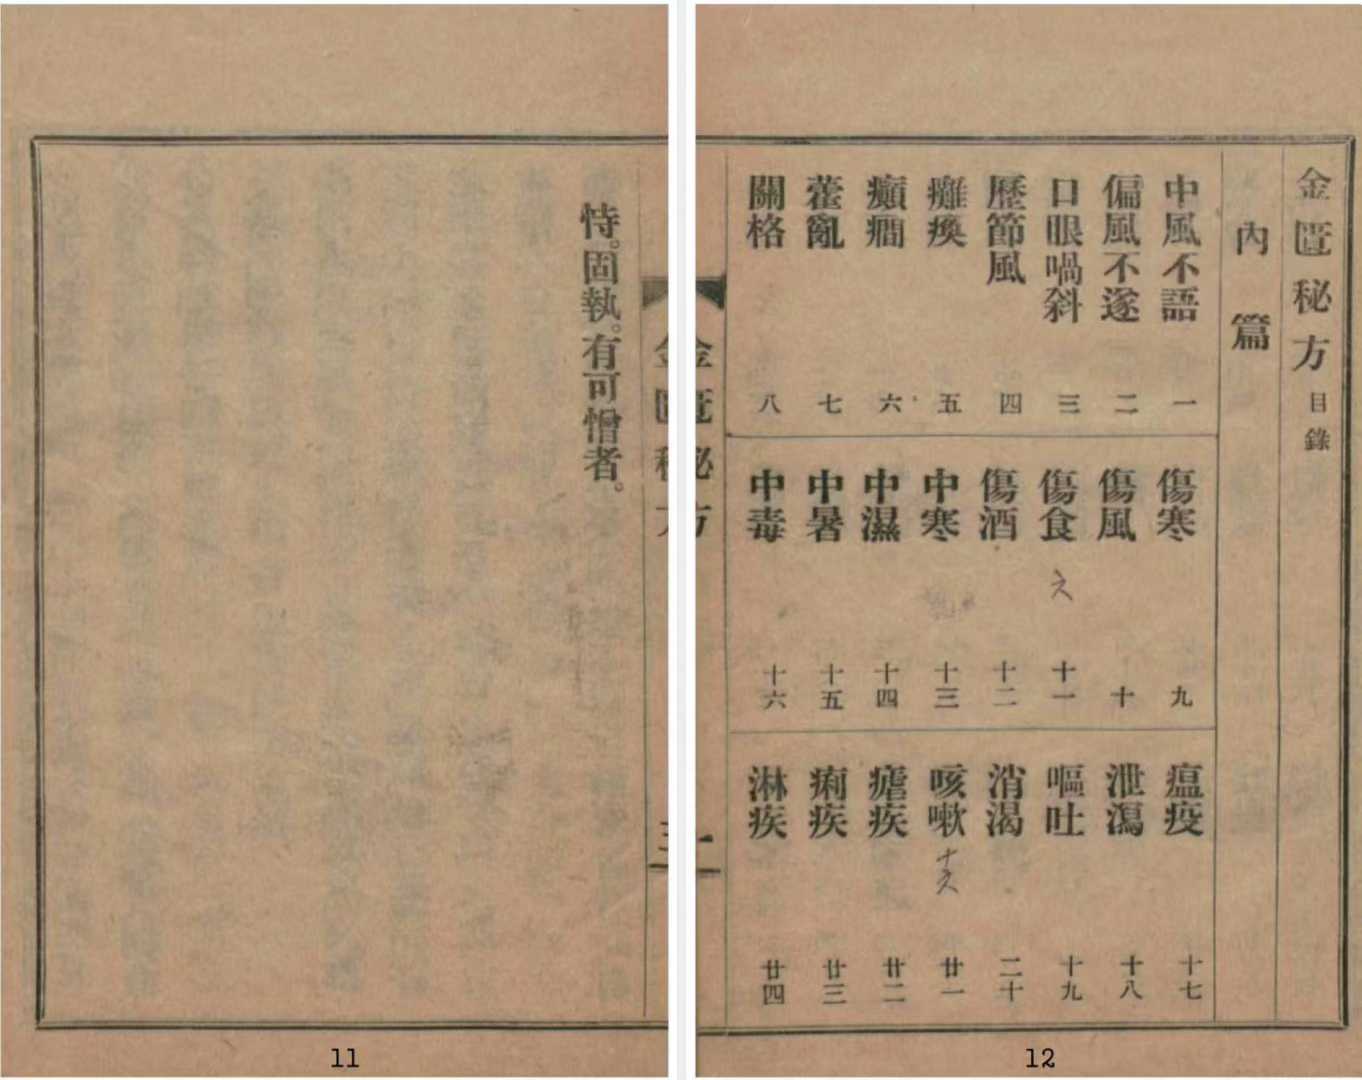 恃。固執。有可憎者。
金匱秘方
金匱秘方 目錄
內篇
中風不語 一
偏風不遂 二
口眼喎斜 三
歷節風 四
癱瘓 五
癲癎 六
藿亂 七
關格 八
傷寒 九
傷風 十
傷食 十一
傷酒 十二
中寒 十三
中濕 十四
中暑 十五
中毒 十六
瘟疫 十七
泄瀉 十八
嘔吐 十九
消渴 二十
咳嗽 廿一
瘧疾 廿二
痢疾 廿三
淋疾 廿四
11
12